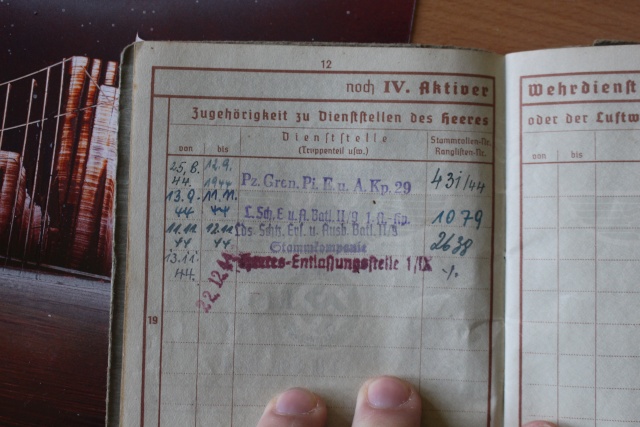 12
noch IV. Aktiver
Wehrdienst
Zugehörigkeit zu Dienststellen des Heeres
oder der Luftw
von bis
Dienststelle
(Truppenteil usw.)
Stammrollen-Nr.
Ranglisten-Nr.
von bis
25.8. 12.9.
44. 1944 Pz. Gren. Pi. E. u. A. Kp. 29 431/44
13.9. 11.11.
44 44 L. Sch. E u. A. Batl. II/9 1079
11.11 12.11 Ers. u. Ausb. Batl. II/9
44 44 Stammkompanie 2638
13.11. Heeres-Entlassungsstelle 1/IX
44.
22.12.44
19